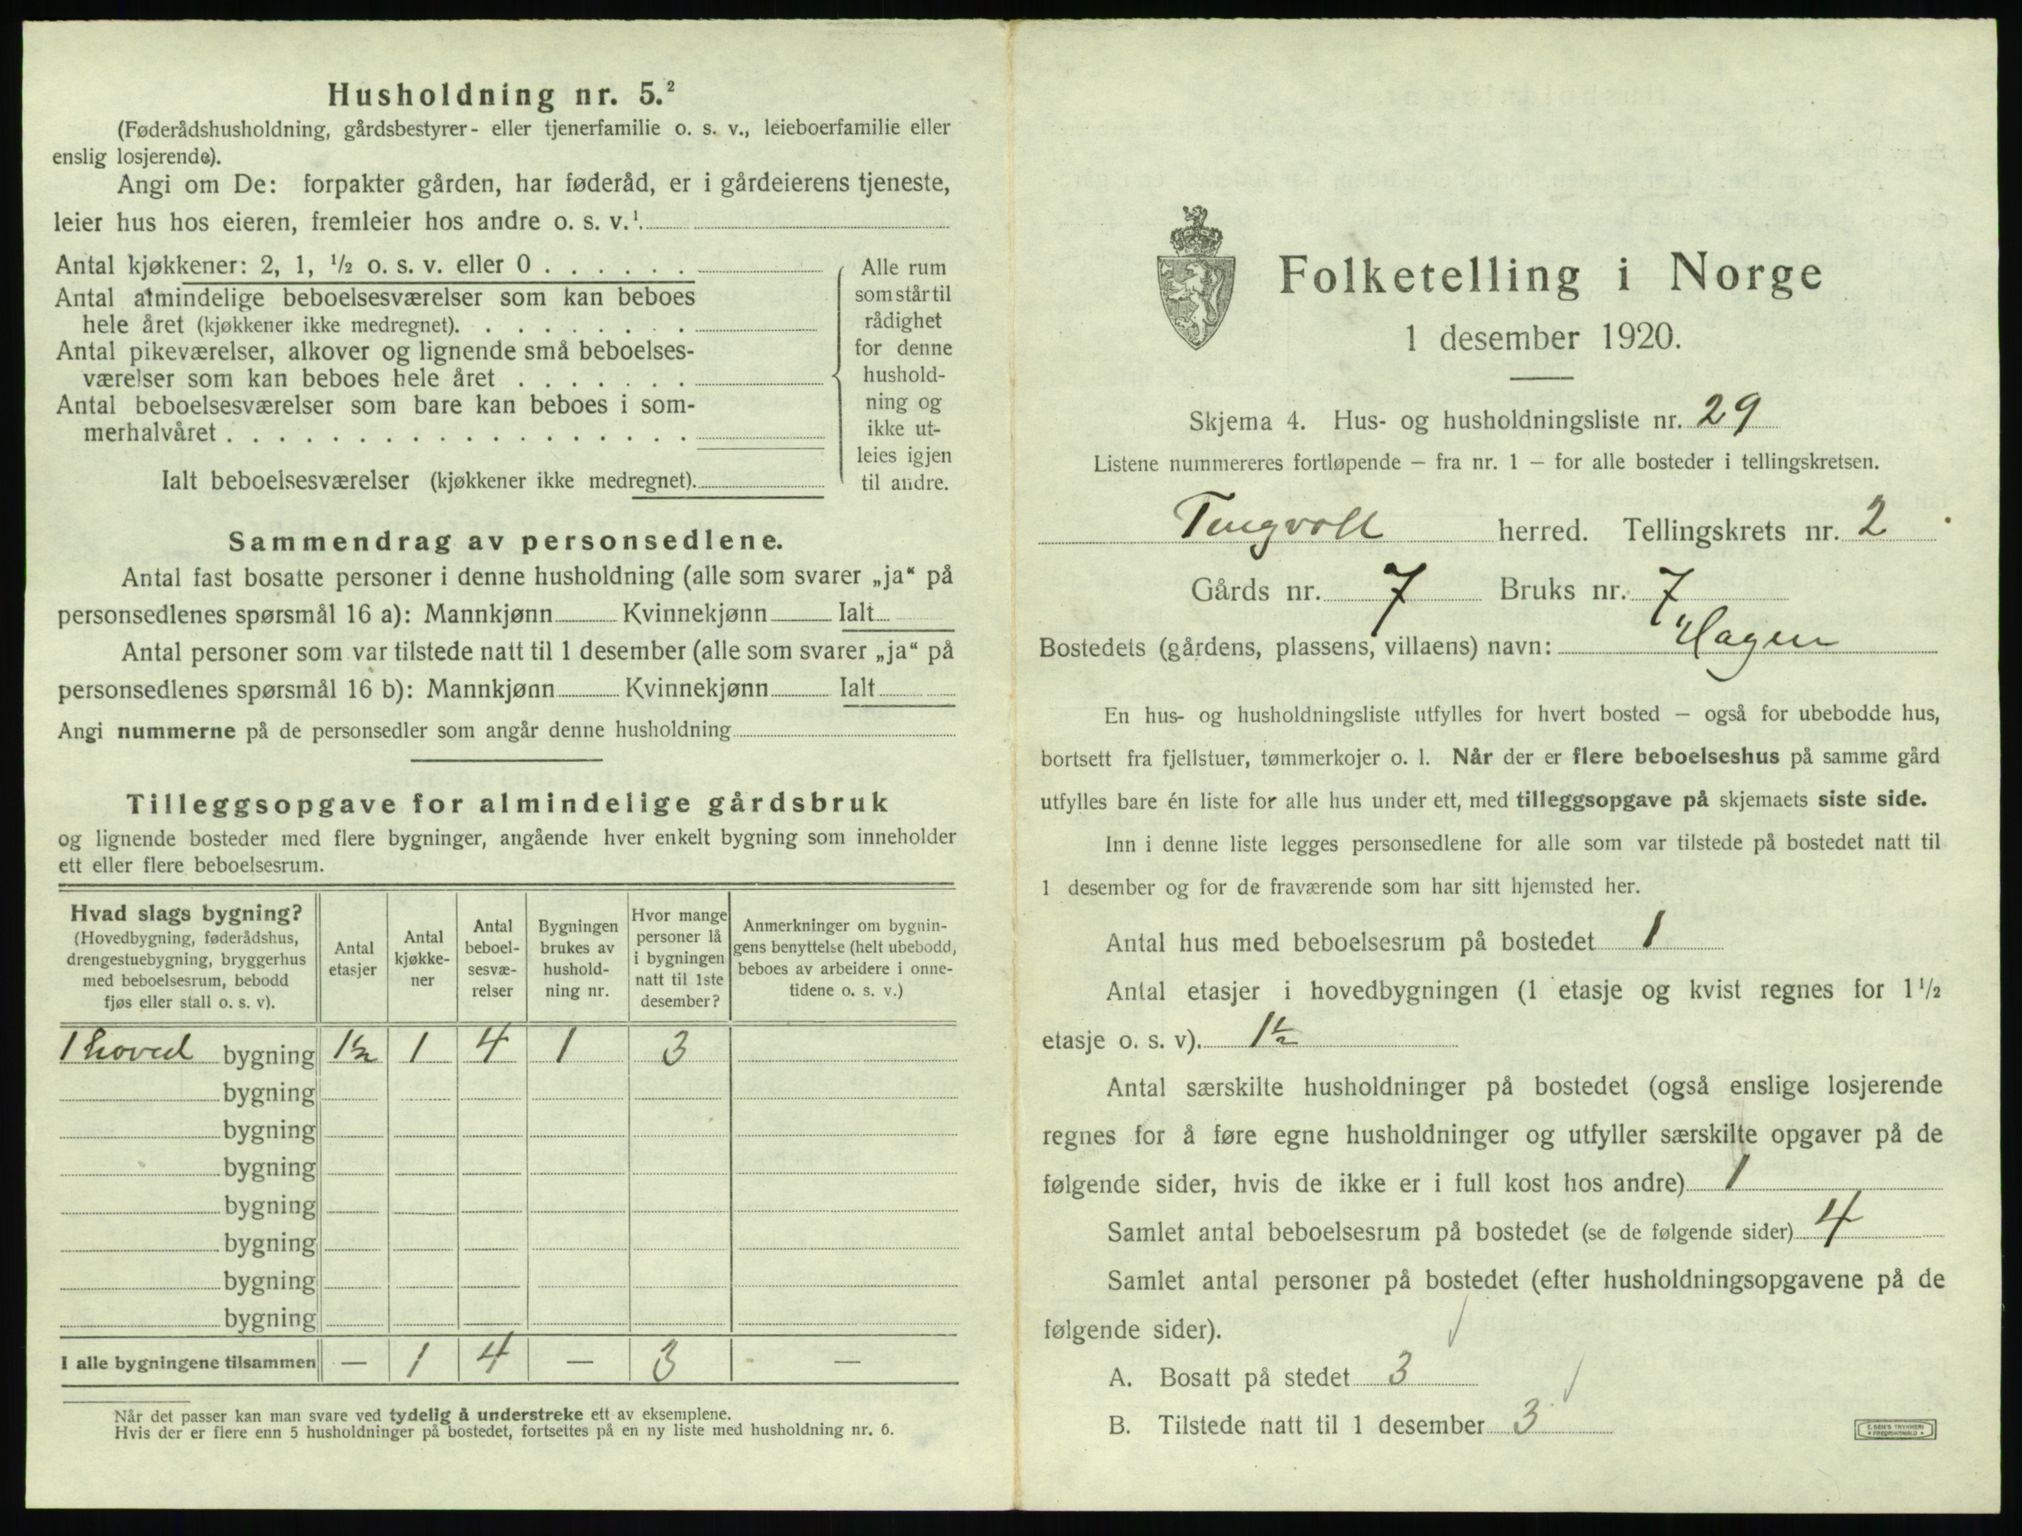 Husholdning nr. 5.²
(Føderådshusholdning, gårdsbestyrer- eller tjenerfamilie o. s. v., leieboerfamilie eller
enslig losjerende).
Angi om De: forpakter gården, har føderåd, er i gårdeierens tjeneste,
leier hus hos eieren, fremleier hos andre o. s. v.¹
Antal kjøkkener: 2, 1, ½ o. s. v. eller 0 . . . . . .
Antal almindelige beboelsesværelser som kan beboes
hele året (kjøkkener ikke medregnet). . . . . . . . .
Antal pikeværelser, alkover og lignende små beboelses-
værelser som kan beboes hele året . . . . . . .
Antal beboelsesværelser som bare kan beboes i som-
merhalvåret . . . . . . . . . . . . . . . . . .
Ialt beboelsesværelser (kjøkkener ikke medregnet).
Alle rum
som står til
rådighet
for denne
hushold-
ning og
ikke ut-
leies igjen
til andre.
Sammendrag av personsedlene.
Antal fast bosatte personer i denne husholdning (alle som svarer „ja“ på
personsedlenes spørsmål 16 a): Mannkjønn Kvinnekjønn Ialt
Antal personer som var tilstede natt til 1 desember (alle som svarer „ja“ på
personsedlenes spørsmål 16 b): Mannkjønn Kvinnekjønn Ialt
Angi nummerne på de personsedler som angår denne husholdning
Tilleggsopgave for almindelige gårdsbruk
og lignende bosteder med flere bygninger, angående hver enkelt bygning som inneholder
ett eller flere beboelsesrum.
Hvad slags bygning?
(Hovedbygning, føderådshus,
drengestuebygning, bryggerhus
med beboelsesrum, bebodd
fjøs eller stall o. s. v).
Antal
etasjer
Antal
kjøkke-
ner
Antal
beboel-
sesvæ-
relser
Bygningen
brukes av
hushold-
ning nr.
Hvor mange
personer lå
i bygningen
natt til 1ste
desember?
Anmerkninger om bygnin-
gens benyttelse (helt ubebodd,
beboes av arbeidere i onne-
tidene o. s. v.)
1 hoved bygning 1½ 1 4 1 3
bygning
bygning
bygning
bygning
bygning
bygning
bygning
I alle bygningene tilsammen — 1 4 — 3 —
Når det passer kan man svare ved tydelig å understreke ett av eksemplene.
Hvis der er flere enn 5 husholdninger på bostedet, fortsettes på en ny liste med husholdning nr. 6.
Folketelling i Norge
1 desember 1920.
Skjema 4. Hus- og husholdningsliste nr. 29
Listene nummereres fortløpende – fra nr. 1 – for alle bosteder i tellingskretsen.
Tingvoll herred. Tellingskrets nr. 2
Gårds nr. 7 Bruks nr. 7
Bostedets (gårdens, plassens, villaens) navn: Hagen
En hus- og husholdningsliste utfylles for hvert bosted – også for ubebodde hus,
bortsett fra fjellstuer, tømmerkojer o. l. Når der er flere beboelseshus på samme gård
utfylles bare én liste for alle hus under ett, med tilleggsopgave på skjemaets siste side.
Inn i denne liste legges personsedlene for alle som var tilstede på bostedet natt til
1 desember og for de fraværende som har sitt hjemsted her.
Antal hus med beboelsesrum på bostedet 1
Antal etasjer i hovedbygningen (1 etasje og kvist regnes for 1½
etasje o. s. v). 1½
Antal særskilte husholdninger på bostedet (også enslige losjerende
regnes for å føre egne husholdninger og utfyller særskilte opgaver på de
følgende sider, hvis de ikke er i full kost hos andre) 1
Samlet antal beboelsesrum på bostedet (se de følgende sider) 4
Samlet antal personer på bostedet (efter husholdningsopgavene på de
følgende sider).
A. Bosatt på stedet 3
B. Tilstede natt til 1 desember 3